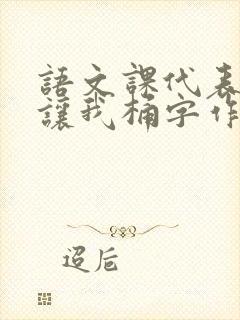 語文課代表
讓我桶字作
迢卮